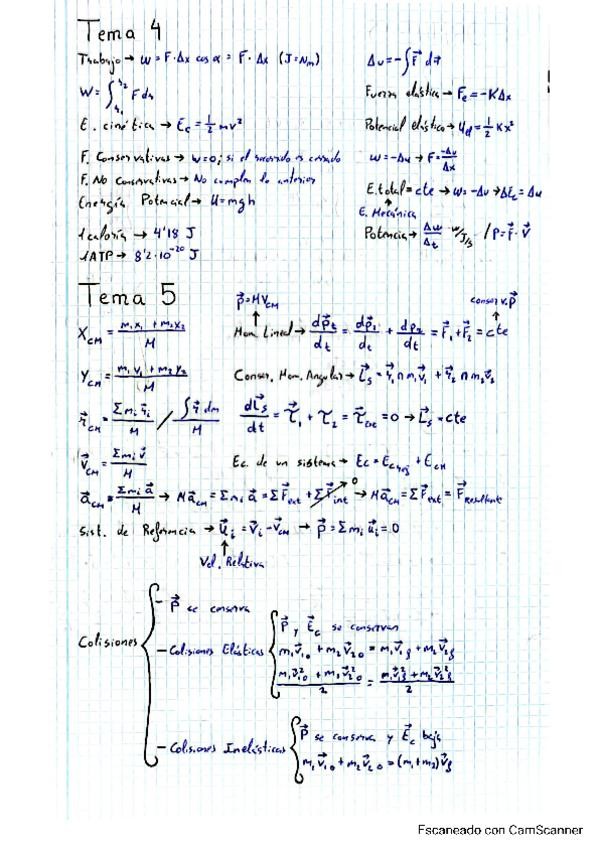 Tema 4
Trabajo → W = F·Δx cos α = F·Δx (J=Nm)
W = ∫_{r₁}^{r₂} F dr
E. cinética → Ec = 1/2 mv²
F. Conservativas → W=0; si el recorrido es cerrado
F. No Conservativas → No cumplen lo anterior
Energía Potencial → U=mgh
1 caloría → 4'18 J
1 ATP → 8'2·10⁻²⁰ J
Δu = -∫F⃗ dr⃗
Fuerza elástica → Fe = -KΔx
Potencial elástico → Ud = 1/2 Kx²
W = -Δu → F = -Δu/Δx
E.total = cte → W = -Δu → ΔEc = Δu
↑
E. Mecánica
Potencia → Δw/Δt → W/J/s / P = F⃗·V⃗
Tema 5
X_CM = (m₁x₁ + m₂x₂)/M
Y_CM = (m₁y₁ + m₂y₂)/M
r⃗_CM = Σm_i r⃗_i/M / ∫r⃗ dm/M
v⃗_CM = Σm_i v⃗/M
p⃗=MV_CM
↑
conserv. p⃗
↑
Mom. Lineal → dp⃗t/dt = dp⃗₁/dt + dp₂/dt = F⃗₁ + F⃗₂ = cte
Conser. Mom. Angular → L⃗s = r⃗₁ ∧ m₁v⃗₁ + r⃗₂ ∧ m₂v⃗₂
dL⃗s/dt = τ⃗₁ + τ₂ = τ⃗ext = 0 → L⃗s = cte
Ec. de un sistema → Ec = Ec + E_CM
a⃗_CM = Σm_i a⃗/M → Ma⃗_CM = Σm_i a⃗ = ΣF⃗ext + ΣF⃗int → 0 → Ma⃗_CM = ΣF⃗ext = F⃗Resultante
Sist. de Referencia → u⃗_i = v⃗_i - v⃗_CM → p⃗ = Σm_i u⃗_i = 0
↑
Vel. Relativa
Colisiones
- P⃗ se conserva
- Colisiones Elásticas
P⃗ y E⃗c se conservan
m₁v⃗₁₀ + m₂v⃗₂₀ = m₁v⃗₁f + m₂v⃗₂f
(m₁v⃗²₁₀ + m₂v⃗²₂₀)/2 = (m₁v⃗²₁f + m₂v⃗²₂f)/2
- Colisiones Inelásticas
P⃗ se conserva y E⃗c baja
m₁v⃗₁₀ + m₂v⃗₂₀ = (m₁+m₂)v⃗f
Escaneado con CamScanner